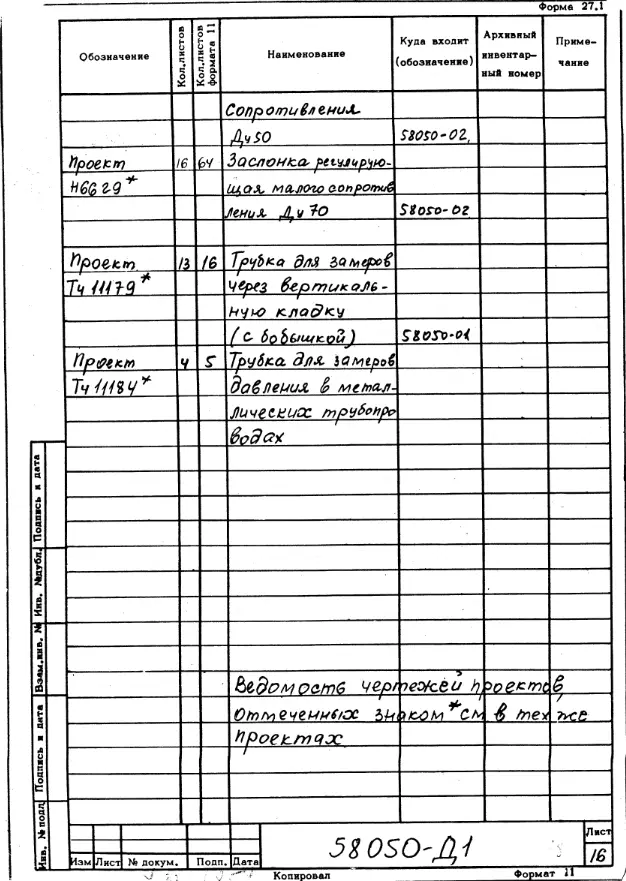 Форма 27.1
Обозначение Кол.листов Кол.листов формата 11 Наименование Куда входит (обозначение) Архивный инвентар-ный номер Приме-чание
Сопротивления
Ду 50 58050-02,
Проект 16 64 Заслонка регулирую-
Н6629* щая малого сопротив
ления Ду 70 58050-02
Проект 13 16 Трубка для замеров
ТЧ 11179* через вертикаль-
ную кладку
(с бобышкой) 58050-01
Проект 4 5 Трубка для замеров
ТЧ 11184* давления в метал-
лических трубопро
водах
Ведомость чертежей проектов,
отмеченных знаком * см в тех же
проектах
Инв. № подл. Подпись и дата Взам.инв. № Инв. №дубл. Подпись и дата
58050-Д1
Лист
16
Изм Лист № докум. Подп. Дата
Копировал Формат 11